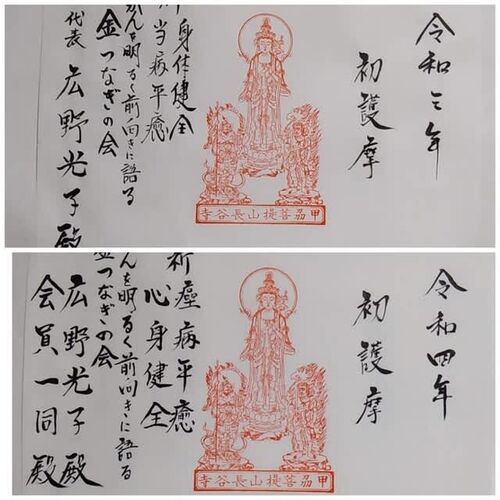 令和三年
初護摩
甲刕菩提山長谷寺
身体健全
当病平癒
がんを明るく前向きに語る
金つなぎの会
代表 広野光子殿
令和四年
初護摩
甲刕菩提山長谷寺
祈病平癒
心身健全
んを明るく前向きに語る
金つなぎの会
広野光子殿
会員一同殿